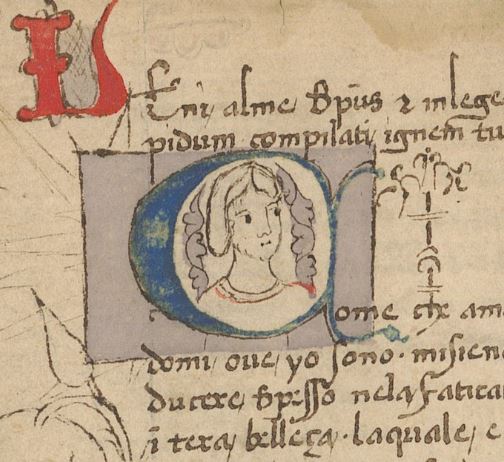 Veni alme sp̄us ⁊ inlege
pidum compilati ignem tu
Come ch amo
domi oue yo sono · misien
ducere spesso nela faticat
ī tera belleça · laquale e